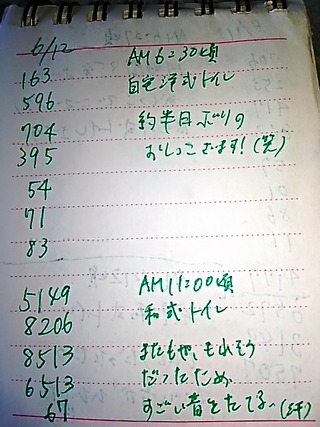 6/12
163 AM6:30頃
596 自宅洋式トイレ
704 約半日ぶりの
395 おしっこでます!(笑)
54
71
83
5149 AM11:00頃
8206 和式トイレ
8513 またもや、もれそう
6513 だったため、
67 すごい音をたてる、(汗)